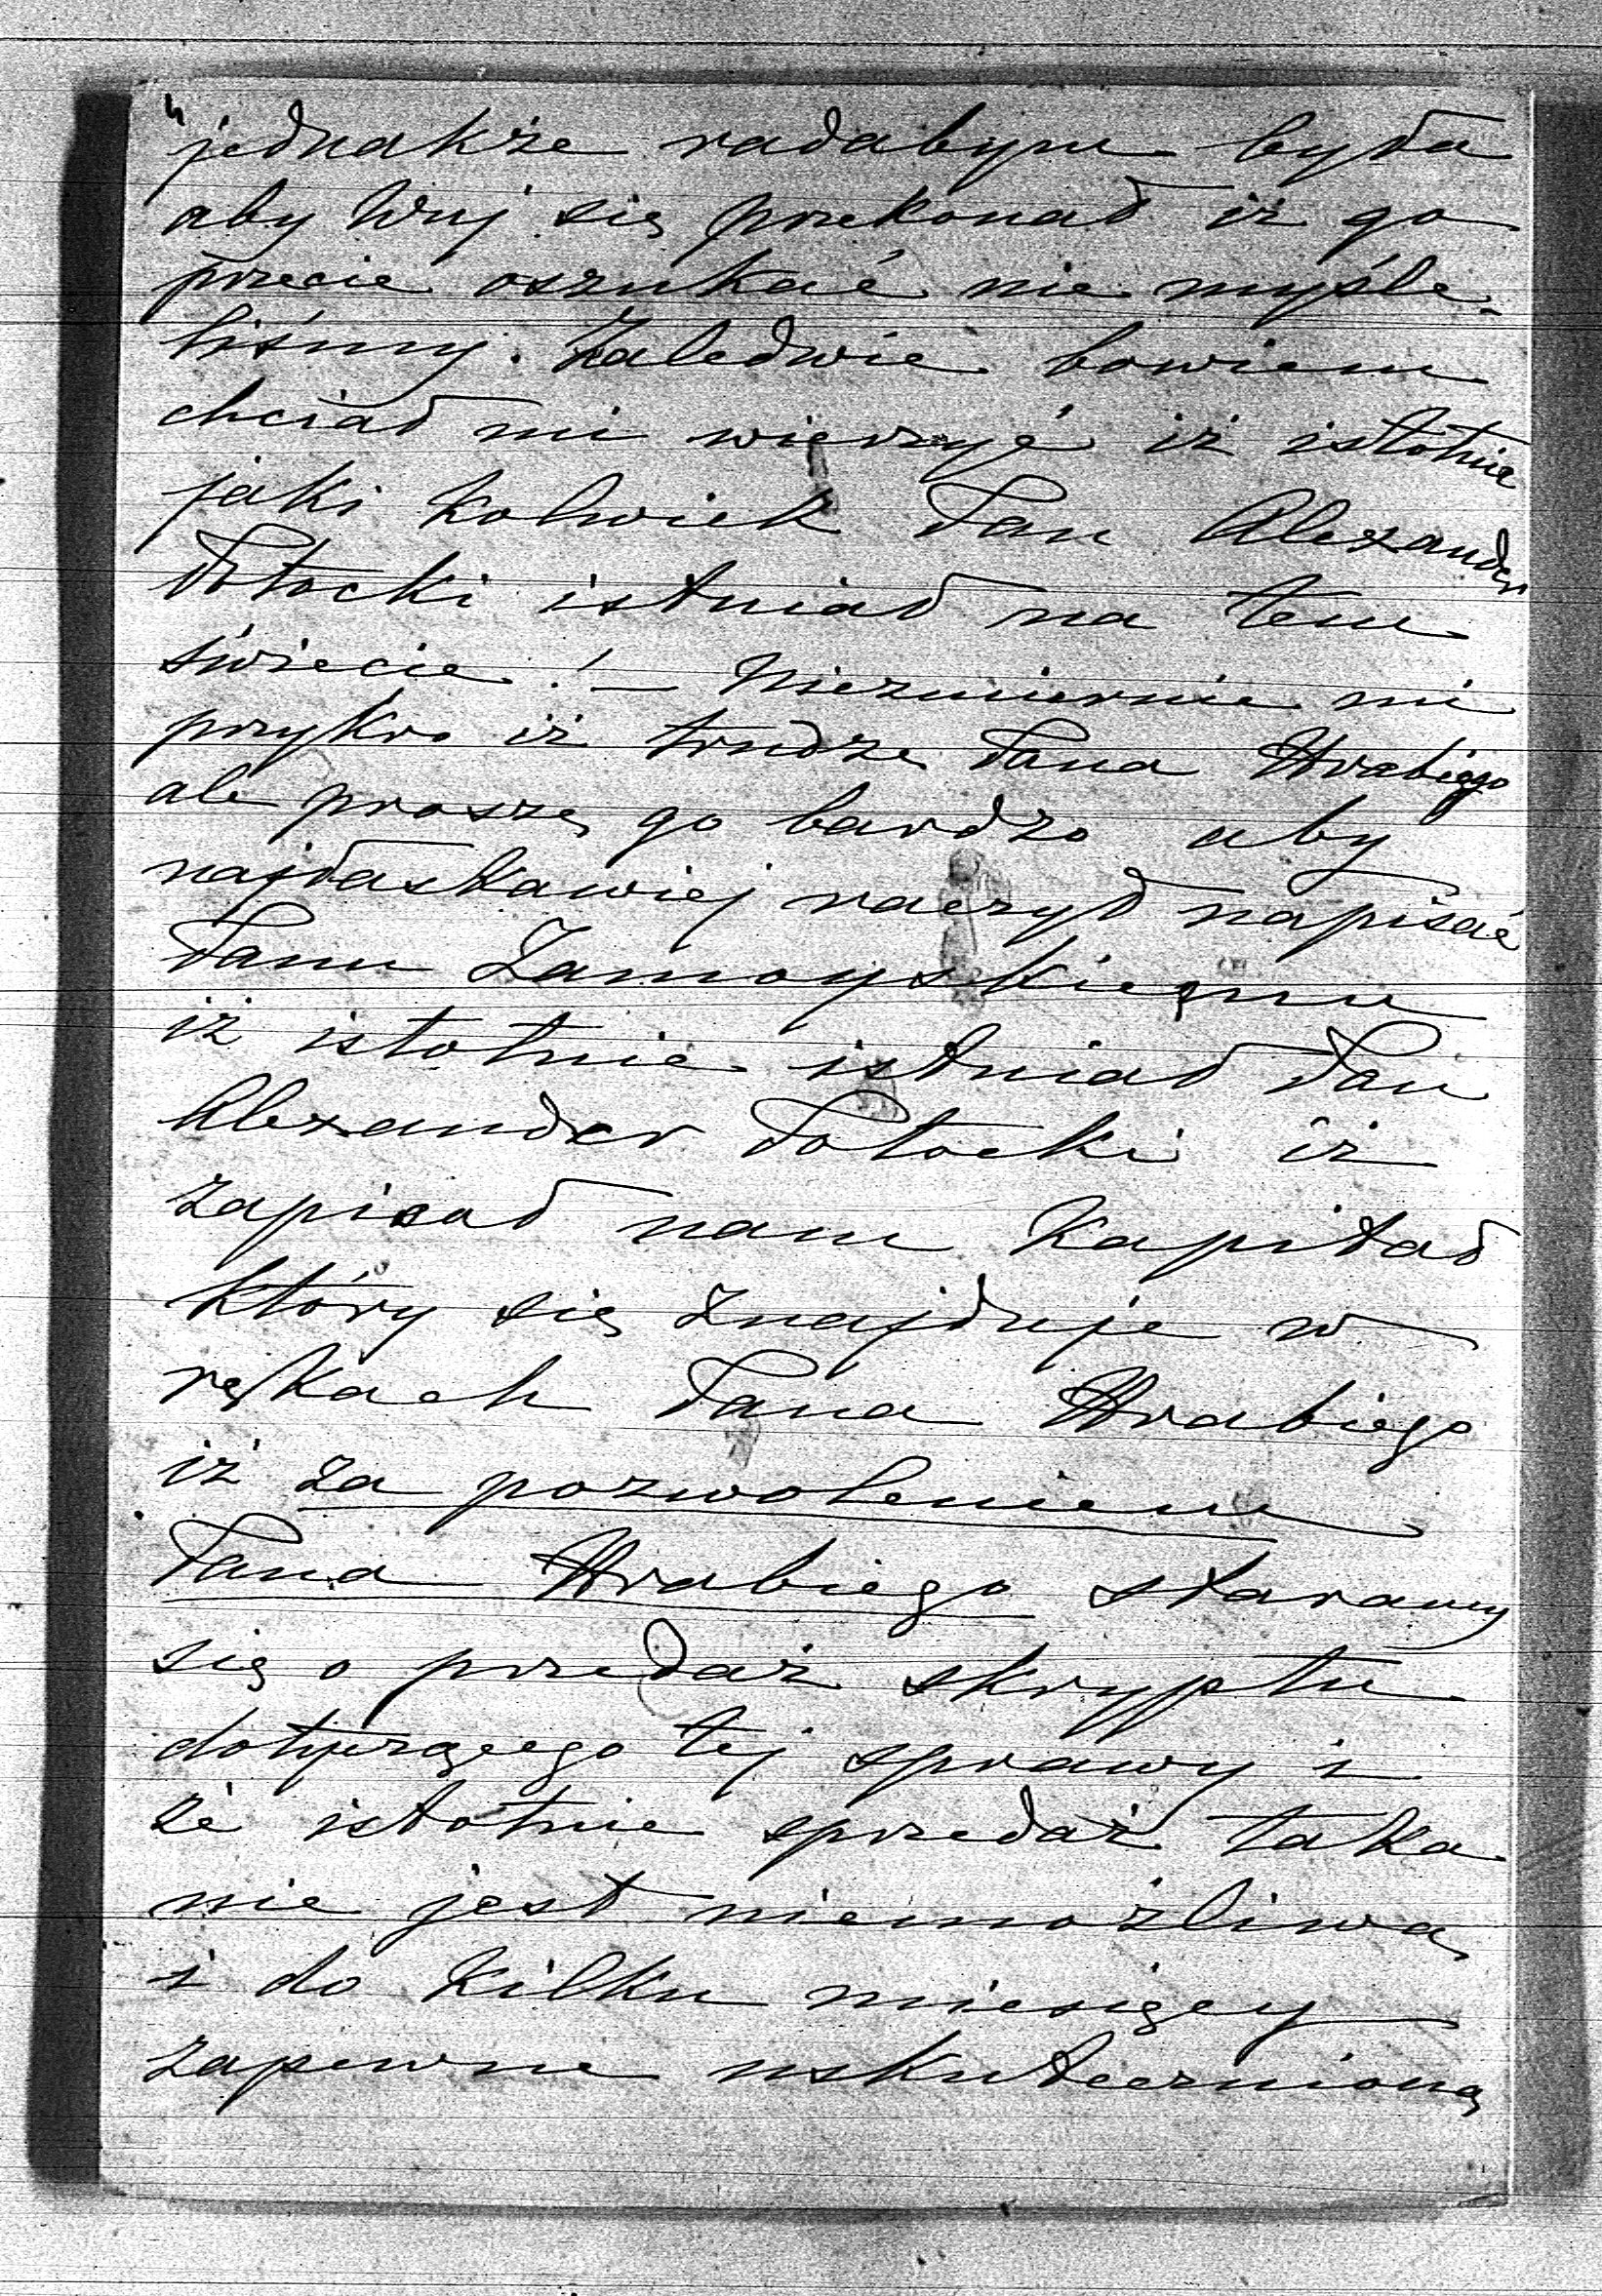 "jednakże radabym była
aby Wuj się przekonał iż go
przecie oszukać nie myśle-
liśmy. Zaledwie bowiem
chciał mi wierzyć iż istotnie
jaki kolwiek Pan Alexander
Potocki istniał na tem
świecie! — Niezmiernie mi
przykro iż trudzę Pana Hrabiego
ale proszę go bardzo aby
najłaskawiej raczył napisać
Panu Zamoyskiemu
iż istotnie istniał Pan
Alexander Potocki iż
zapisał nam Kapitał
który się znajduje w
rękach Pana Hrabiego
iż za pozwoleniem
Pana Hrabiego staramy
się o przedaż skryptu
dotyczącego tej sprawy i
że istotnie sprzedaż taka
nie jest niemożliwą
i do kilku miesięcy
zapewne uskutecznioną